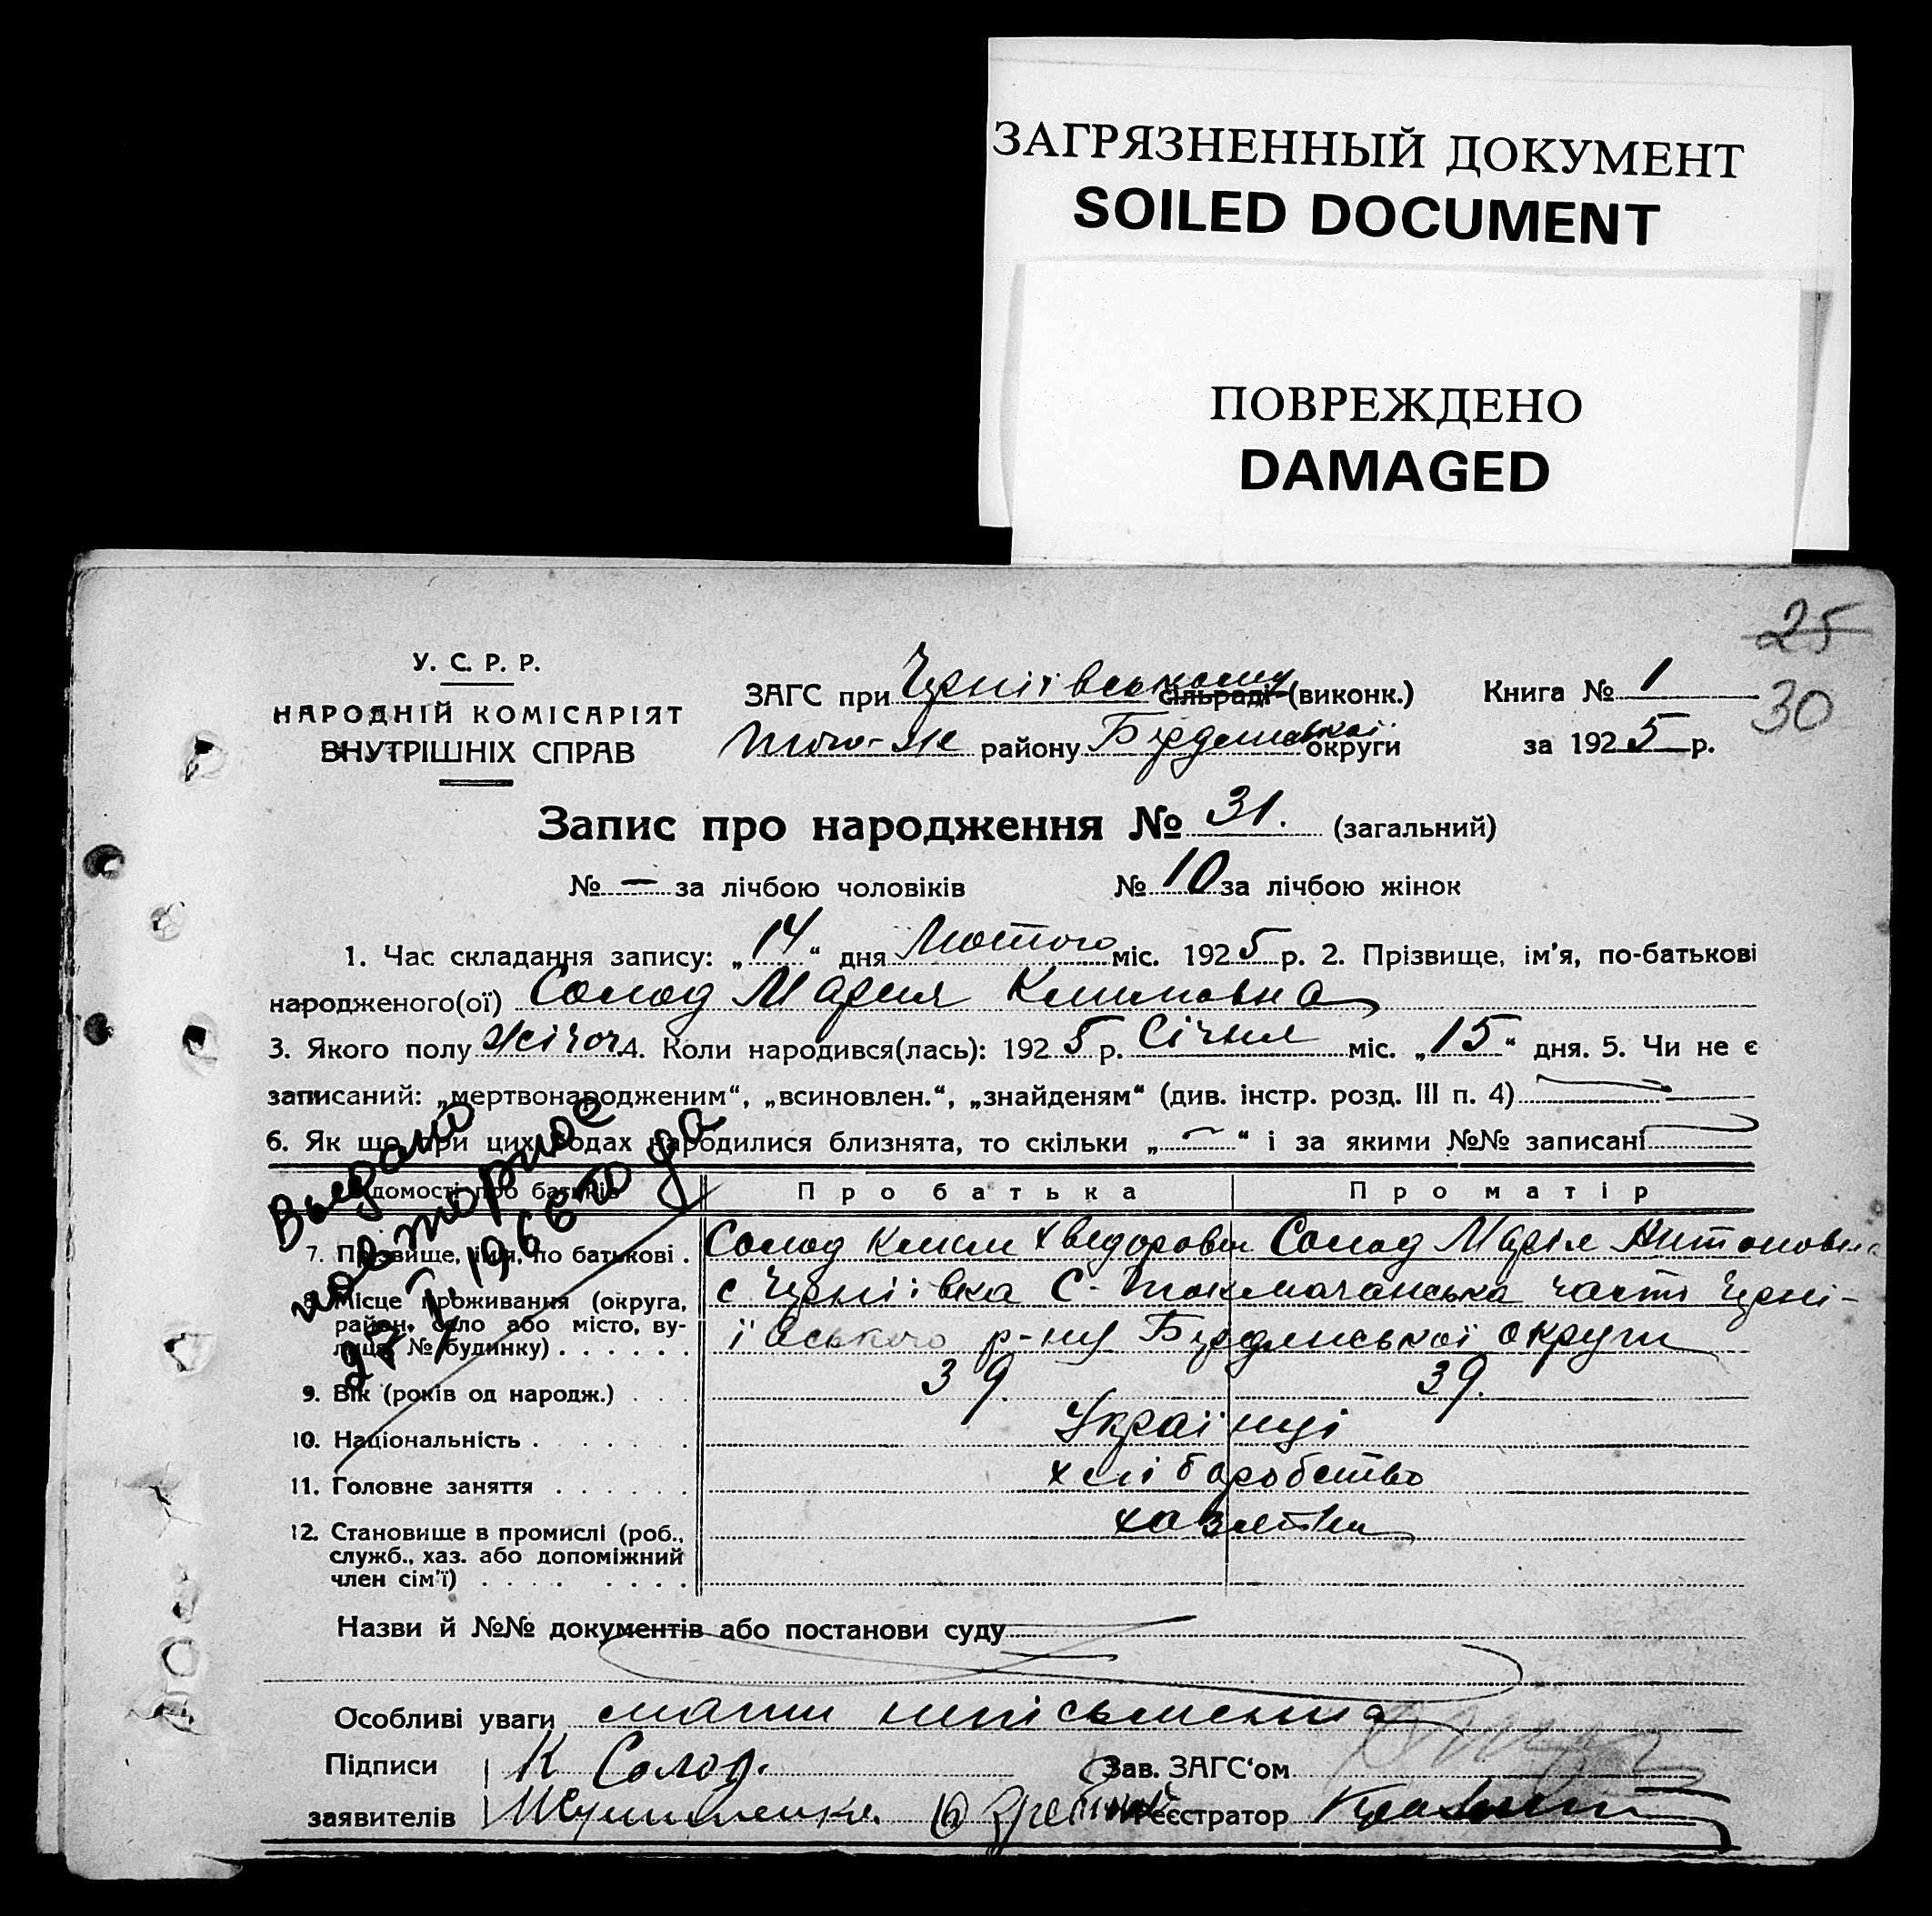 ЗАГРЯЗНЕННЫЙ ДОКУМЕНТ
SOILED DOCUMENT
ПОВРЕЖДЕНО
DAMAGED
25
30
У. С. Р. Р.
НАРОДНІЙ КОМІСАРІЯТ
ВНУТРІШНІХ СПРАВ
ЗАГС при Черніівському сільраді (виконк.)
того-же району Бердянської округи
Книга № 1
за 1925 р.
Запис про народження № 31. (загальний)
№ — за лічбою чоловіків № 10 за лічбою жінок
1. Час складання запису: „14“ дня Лютого міс. 1925 р. 2. Прізвище, ім'я, по-батькові
народженого(ої) Солод Мария Климовна
3. Якого полу жіноч 4. Коли народився(лась): 1925 р. Січня міс. „15“ дня. 5. Чи не є
записаний: „мертвонародженим“, „всиновлен.“, „знайденям“ (див. інстр. розд. III п. 4) —
6. Як що при цих родах народилися близнята, то скільки „—“ і за якими №№ записані —
Выдано
повторное
27/I 1966 года
Відомості про батьків Про батька Про матір
7. Прізвище, ім'я, по батькові . Солод Клим Хведорович Солод Марія Антоновна
8. Місце проживання (округа, с Черніівка С-Токмачанська часть Черні-
район, село або місто, ву-
лиця, № будинку) . . . . . . ївського р-ну Бердянської округи
9. Вік (років од народж.) . . . 39. 39.
10. Національність . . . . . . . Українці
11. Головне заняття . . . . . . хліборобство
12. Становище в промислі (роб., хазяїни
служб., хаз. або допоміжний
член сім'ї) . . . . . . . .
Назви й №№ документів або постанови суду
Особливі уваги мати нипісьменна
Підписи К Солод. Зав. ЗАГС'ом
заявителів Реєстратор